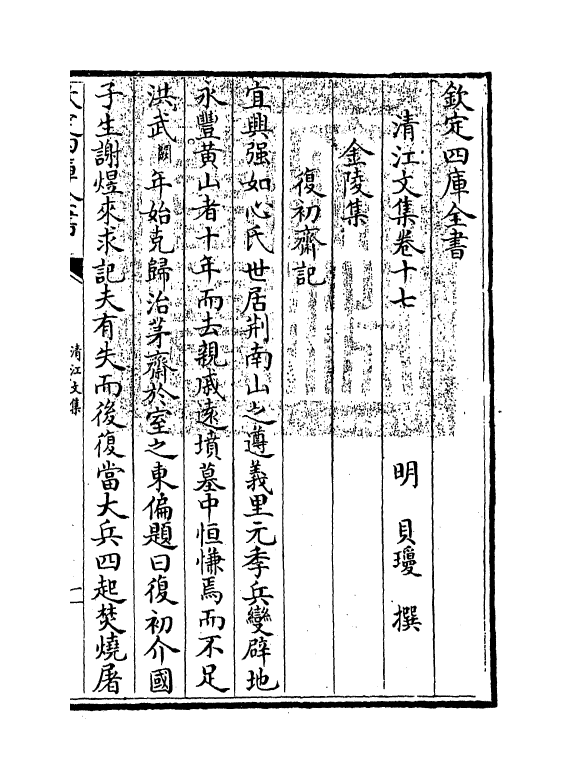 欽定四庫全書
清江文集卷十七
明 貝瓊 撰
金陵集
復初齋記
宜興强如心氏世居荆南山之遵義里元季兵變辟地
永豐黄山者十年而去親戚遠墳墓中恒慊焉而不足
洪武闕年始克歸治茅齋於室之東偏題曰復初介國
子生謝煜來求記夫有失而後復當大兵四起焚燒屠
欽定四庫全書
清江文集
一